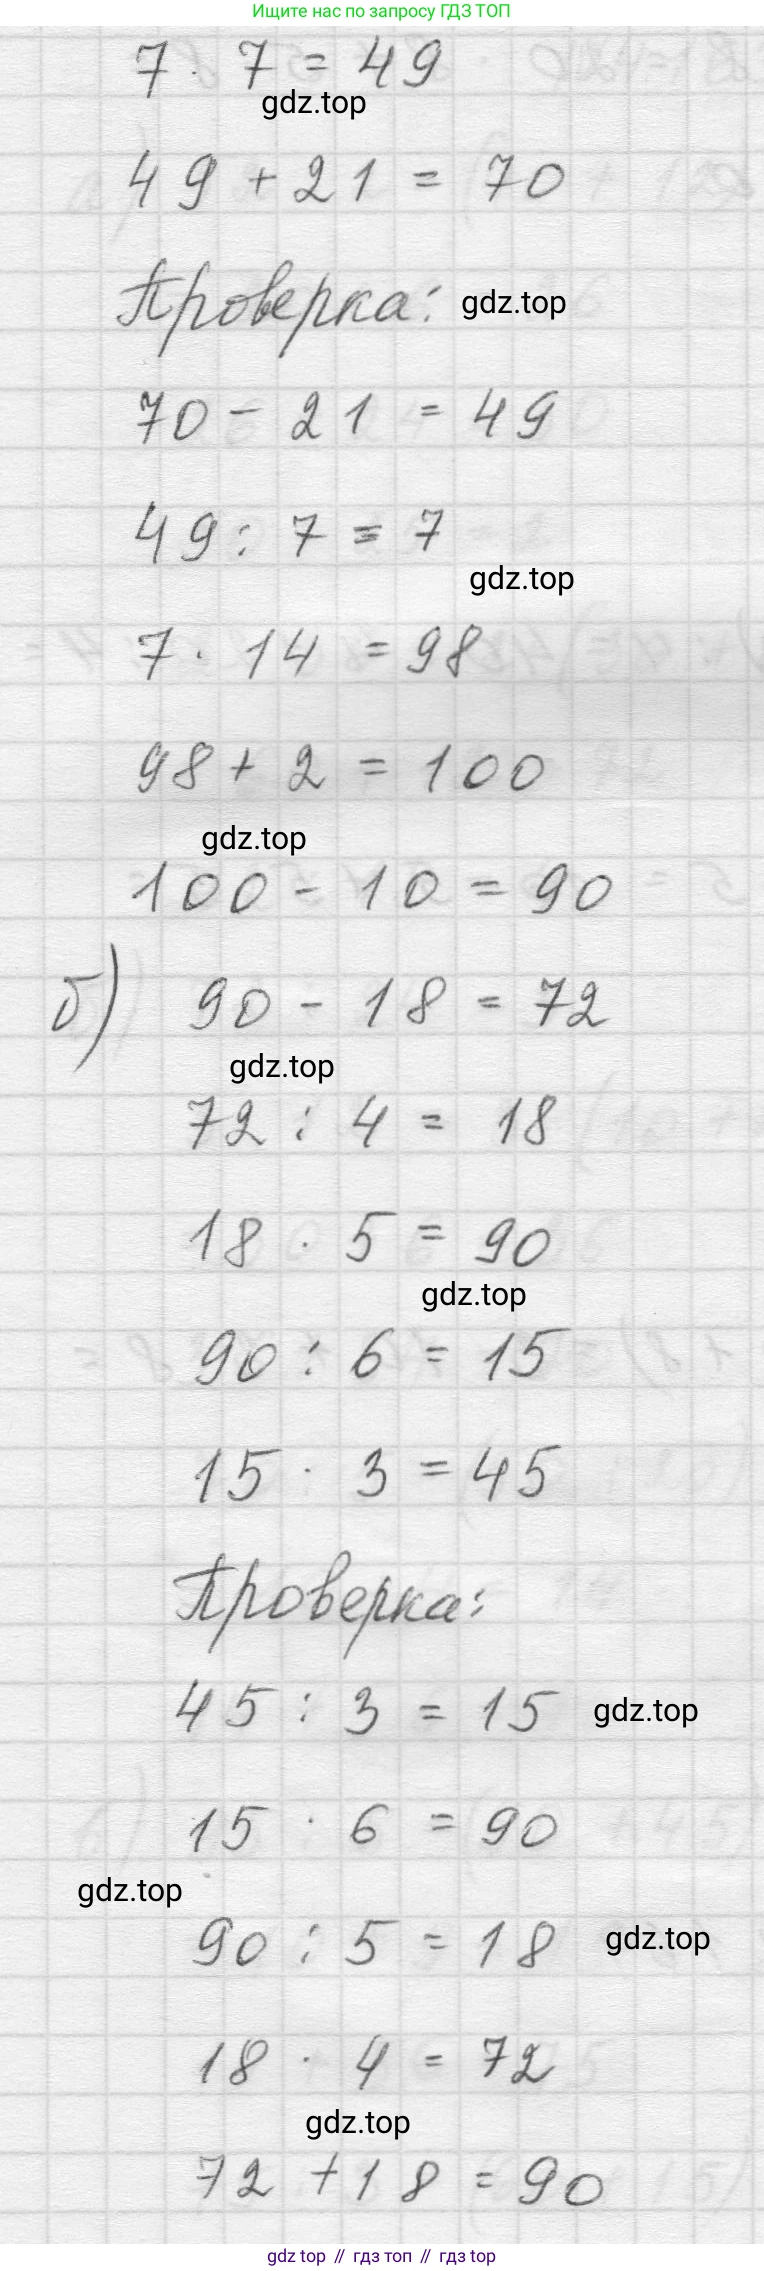 Ищите нас по запросу ГДЗ ТОП
7 · 7 = 49
gdz.top
49 + 21 = 70
Проверка: gdz.top
70 - 21 = 49
49 : 7 = 7
gdz.top
7 · 14 = 98
98 + 2 = 100
gdz.top
100 - 10 = 90
б) 90 - 18 = 72
gdz.top
72 : 4 = 18
18 · 5 = 90
gdz.top
90 : 6 = 15
15 · 3 = 45
Проверка:
45 : 3 = 15 gdz.top
15 · 6 = 90
gdz.top
90 : 5 = 18 gdz.top
18 · 4 = 72
gdz.top
72 + 18 = 90
gdz top // гдз топ // gdz top